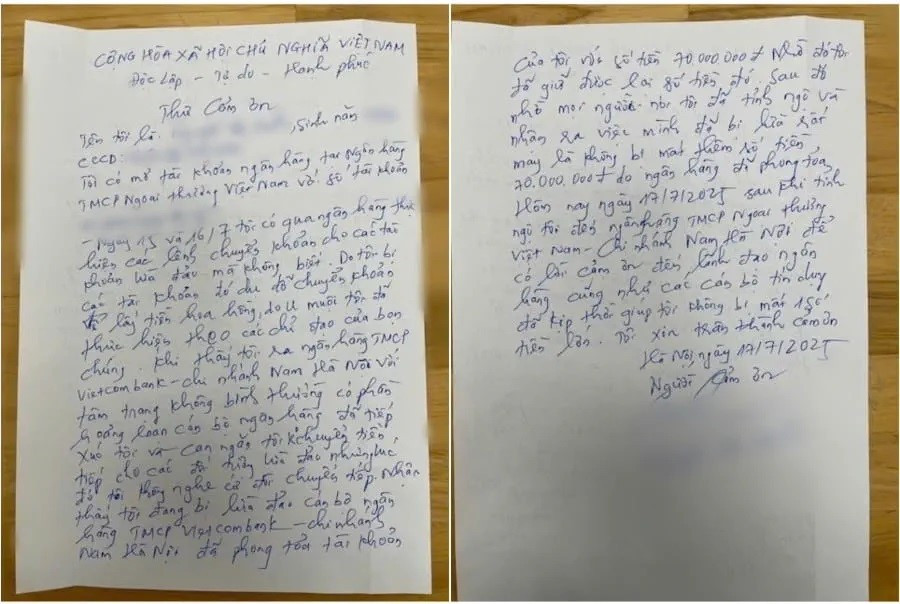 CỘNG HÒA XÃ HỘI CHỦ NGHĨA VIỆT NAM
Độc Lập - Tự do - Hạnh phúc
Thư Cảm ơn
Tên tôi là: , sinh năm
CCCD:
Tôi có mở tài khoản ngân hàng tại Ngân hàng
TMCP Ngoại thương Việt Nam với số tài khoản
- Ngày 15 và 16/7 tôi có qua ngân hàng thực
hiện các lệnh chuyển khoản cho các tài
khoản lừa đảo mà không biết. Do tôi bị
các tài khoản đó dụ dỗ chuyển khoản
để lấy tiền hoa hồng, do u muội tôi đã
thực hiện theo các chỉ đạo của bọn
chúng. Khi thấy tôi ra ngân hàng TMCP
Vietcombank - chi nhánh Nam Hà Nội với
tâm trạng không bình thường có phần
hoảng loạn cán bộ ngân hàng đã tiếp
xúc tôi và can ngăn tôi k chuyển tiền
tiếp cho các đối tượng lừa đảo nhưng lúc
đó tôi không nghe cứ đòi chuyển tiếp. Nhận
thấy tôi đang bị lừa đảo cán bộ ngân
hàng TMCP Vietcombank - chi nhánh
Nam Hà Nội đã phong tỏa tài khoản
Của tôi với số tiền 70.000.000đ Nhờ đó tôi
đã giữ được lại số tiền đó. Sau đó
nhờ mọi người nói tôi đã tỉnh ngộ và
nhận ra việc mình đã bị lừa rất
may là không bị mất thêm số tiền
70.000.000đ do ngân hàng đã phong tỏa
Hôm nay ngày 17/7/2025 sau khi tỉnh
ngộ tôi đến ngân hàng TMCP Ngoại thương
Việt Nam - Chi nhánh Nam Hà Nội để
có lời cảm ơn đến lãnh đạo ngân
hàng cũng như các cán bộ tín dụng
đã kịp thời giúp tôi không bị mất 1 số
tiền lớn. Tôi xin trân thành cảm ơn
Hà Nội, ngày 17/7/2025
Người cảm ơn